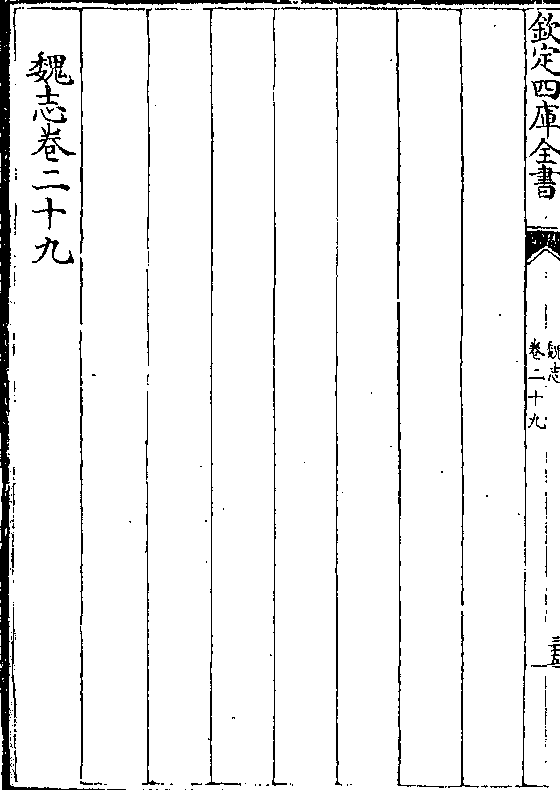 欽定四庫全書
魏志
卷二十九
魏志卷二十九